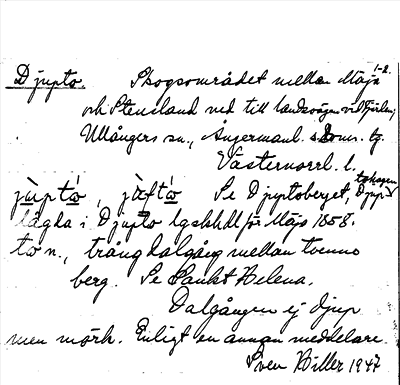 Djupto. Skogsområdet mellan Mäja 1-2.
och Stensland ned till landsvägen vid Fjärden,
Ullångers sn., Ångermanl. s. Doms. tg.
Västernorrl. l.
jùptò, jùftò Se Djuptoberget,
lägda i Djupto hgskhdl för Mäja 1858.
to n., trång dalgång mellan tvenne
berg. Se Sankt Helena.
Dalgången ej djup
men mörk. Enligt en annan meddelare.
Sven Hiller 1947